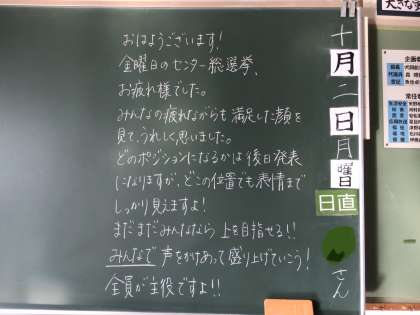 おはようございます!
金曜日のセンター総選挙、
お疲れ様でした。
みんなの疲れながらも満足した顔を
見て、うれしく思いました。
どのポジションになるかは後日発表
になりますが、どこの位置でも表情まで
しっかり見えますよ!
まだまだみんななら上を目指せる!!
みんなで声をかけあって盛り上げていこう!
全員が主役ですよ!!
十月二日月曜日
日直
さん